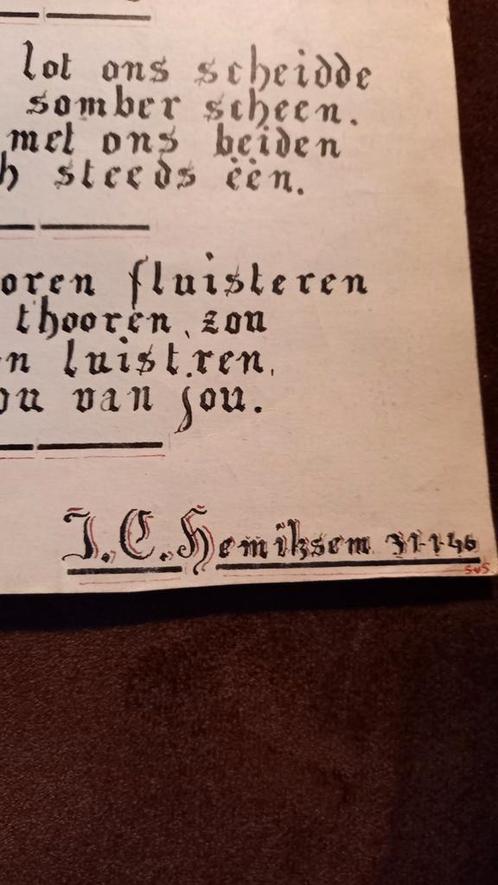 lot ons scheidde
somber scheen.
met ons beiden
h steeds ëèn.
oren fluisteren
thooren, zou
n luist.ren,
ou van jou.
I.C. Hemiksem 31-1-46
SvS